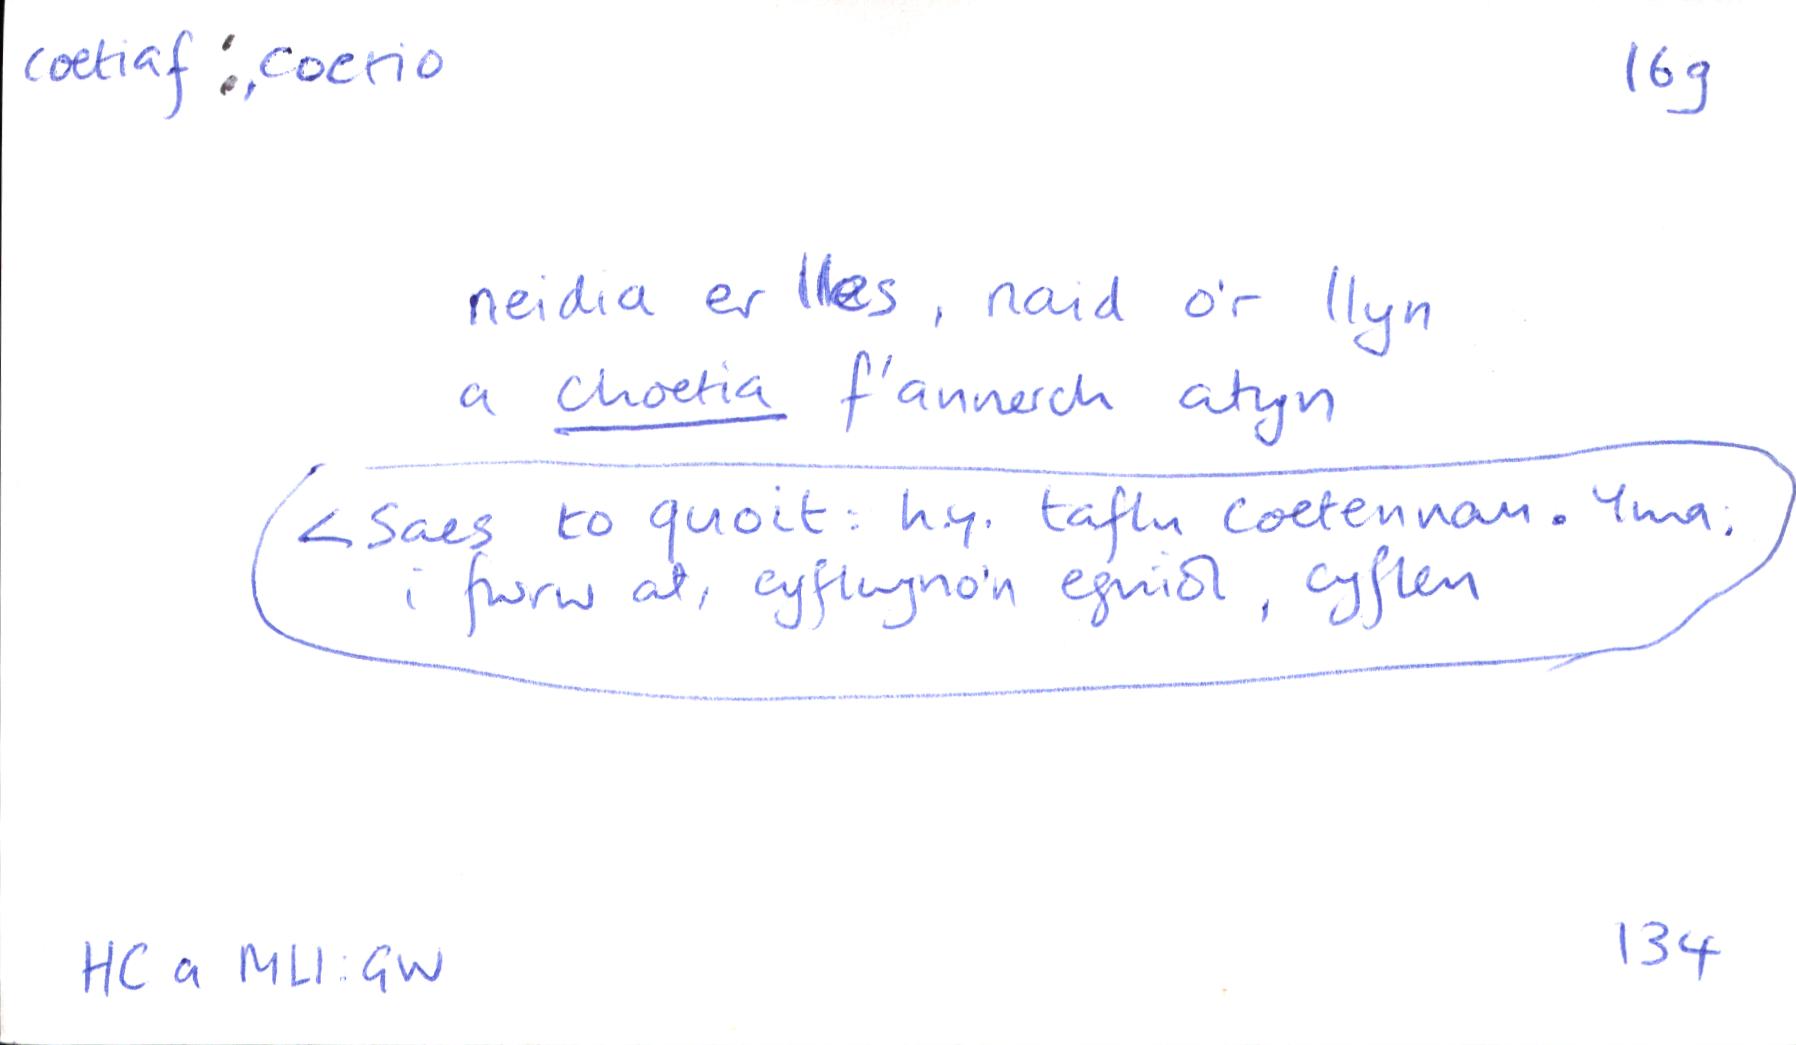 coetiaf :, coetio
16g
neidia er lles, naid o'r llyn
a choetia f'annerch atyn
< Saes to quoit : h.y. taflu coetennau. Yma:
i fwrw at, cyflwyno'n egnïol, cyflen
HC a MLl : GW
134